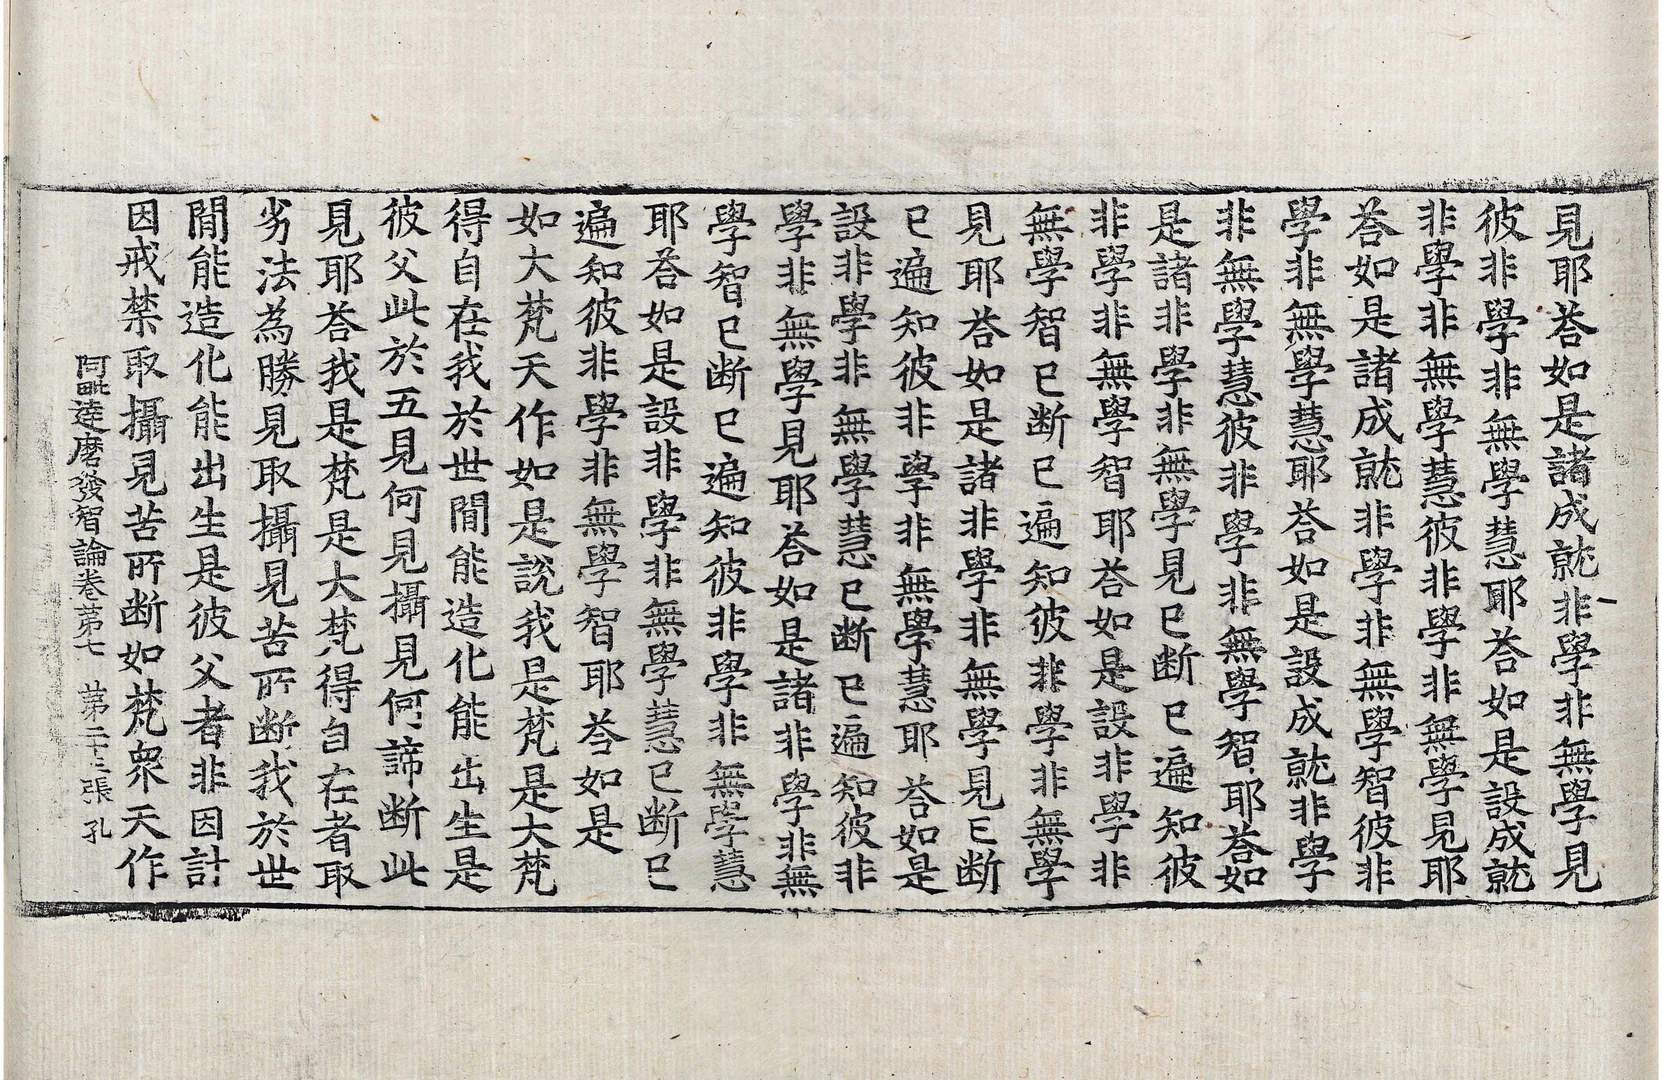 見耶荅如是諸成就非學非無學見
彼非學非無學慧耶荅如是設成就
非學非無學慧彼非學非無學見耶
荅如是諸成就非學非無學智彼非
學非無學慧耶荅如是設成就非學
非無學慧彼非學非無學智耶荅如
是諸非學非無學見已断已遍知彼
非學非無學智耶荅如是設非學非
無學智已断已遍知彼非學非無學
見耶荅如是諸非學非無學見已断
已遍知彼非學非無學慧耶荅如是
設非學非無學慧已断已遍知彼非
學非無學見耶荅如是諸非學非無
學智已断已遍知彼非學非無學慧
耶荅如是設非學非無學慧已断已
遍知彼非學非無學智耶荅如是
如大梵天作如是說我是梵是大梵
得自在我於世間能造化能出生是
彼父此於五見何見攝見何諦断此
見耶荅我是梵是大梵得自在者取
劣法為勝見取攝見苦所断我於世
間能造化能出生是彼父者非因計
因戒禁取攝見苦所断如梵衆天作
阿毗達磨發智論卷第七 第二十三張 孔